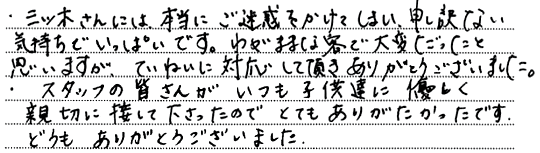 ・三ツ木さんには、本当にご迷惑をかけてしまい、申し訳ない
気持ちでいっぱいです。わがままな客で大変だったこと
思いますが、ていねいに対応して頂きありがとうございました。
・スタッフの皆さんがいつも子供達に優しく
親切に接して下さったのでとてもありがたかったです。
どうもありがとうございました.